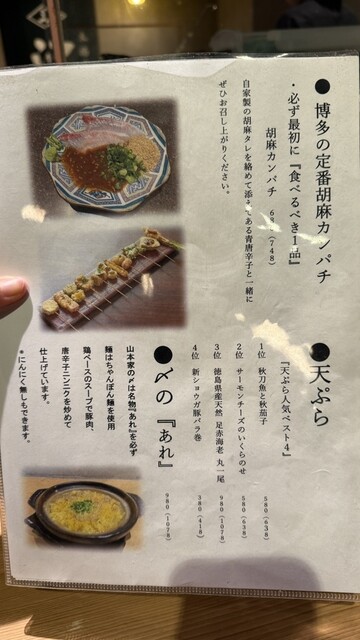 ●博多の定番胡麻カンパチ
・必ず最初に『食べるべき1品』
胡麻カンパチ
自家製の胡麻タレを絡めて添えてある青唐辛子と一緒に
ぜひお召し上がりください。
●天ぷら
『天ぷら人気ベスト4』
1位 秋刀魚と秋茄子 580(638)
2位 サーモンチーズのいくらのせ 580(638)
3位 徳島県産天然 足赤海老 丸一尾 980(1078)
4位 新ショウガ豚バラ巻 380(418)
●〆の『あれ』 980(1078)
山本家の〆は名物『あれ』を必ず
麺はちゃんぽん麺を使用
鶏ベースのスープで豚肉、
唐辛子ニンニクを炒めて
仕上げています。
*にんにく無しもできます。